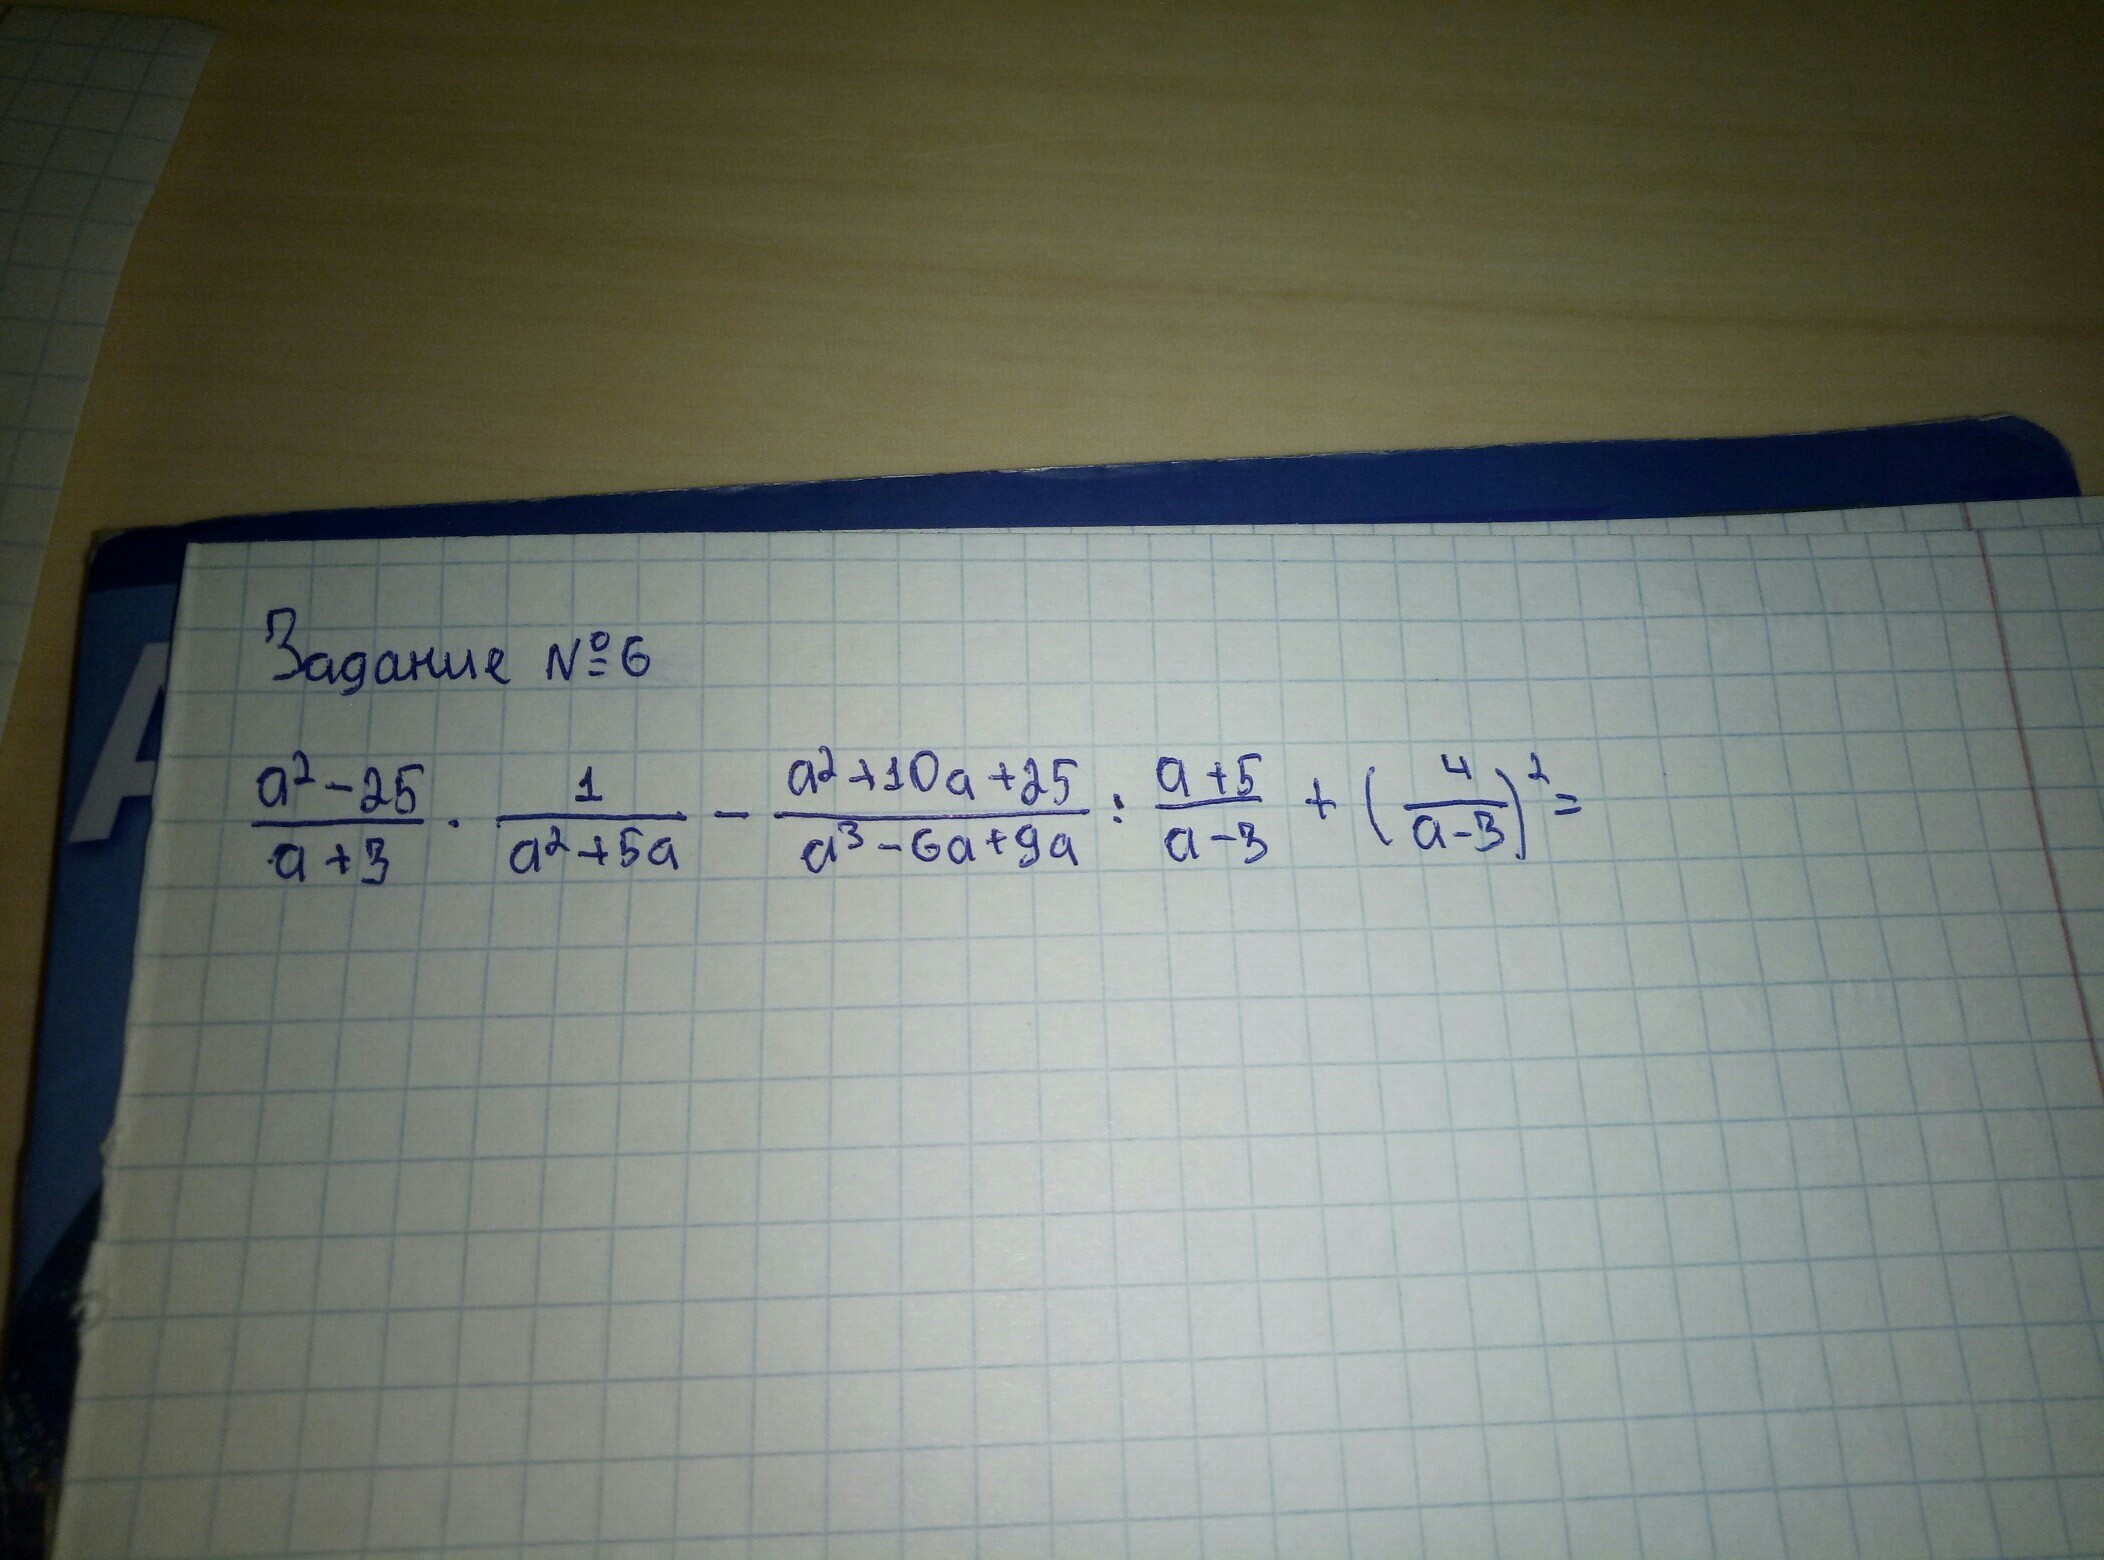 Задание №6
(a²-25)/(a+3) · 1/(a²+5a) - (a²+10a+25)/(a³-6a+9a) : (a+5)/(a-3) + (4/(a-3))² =